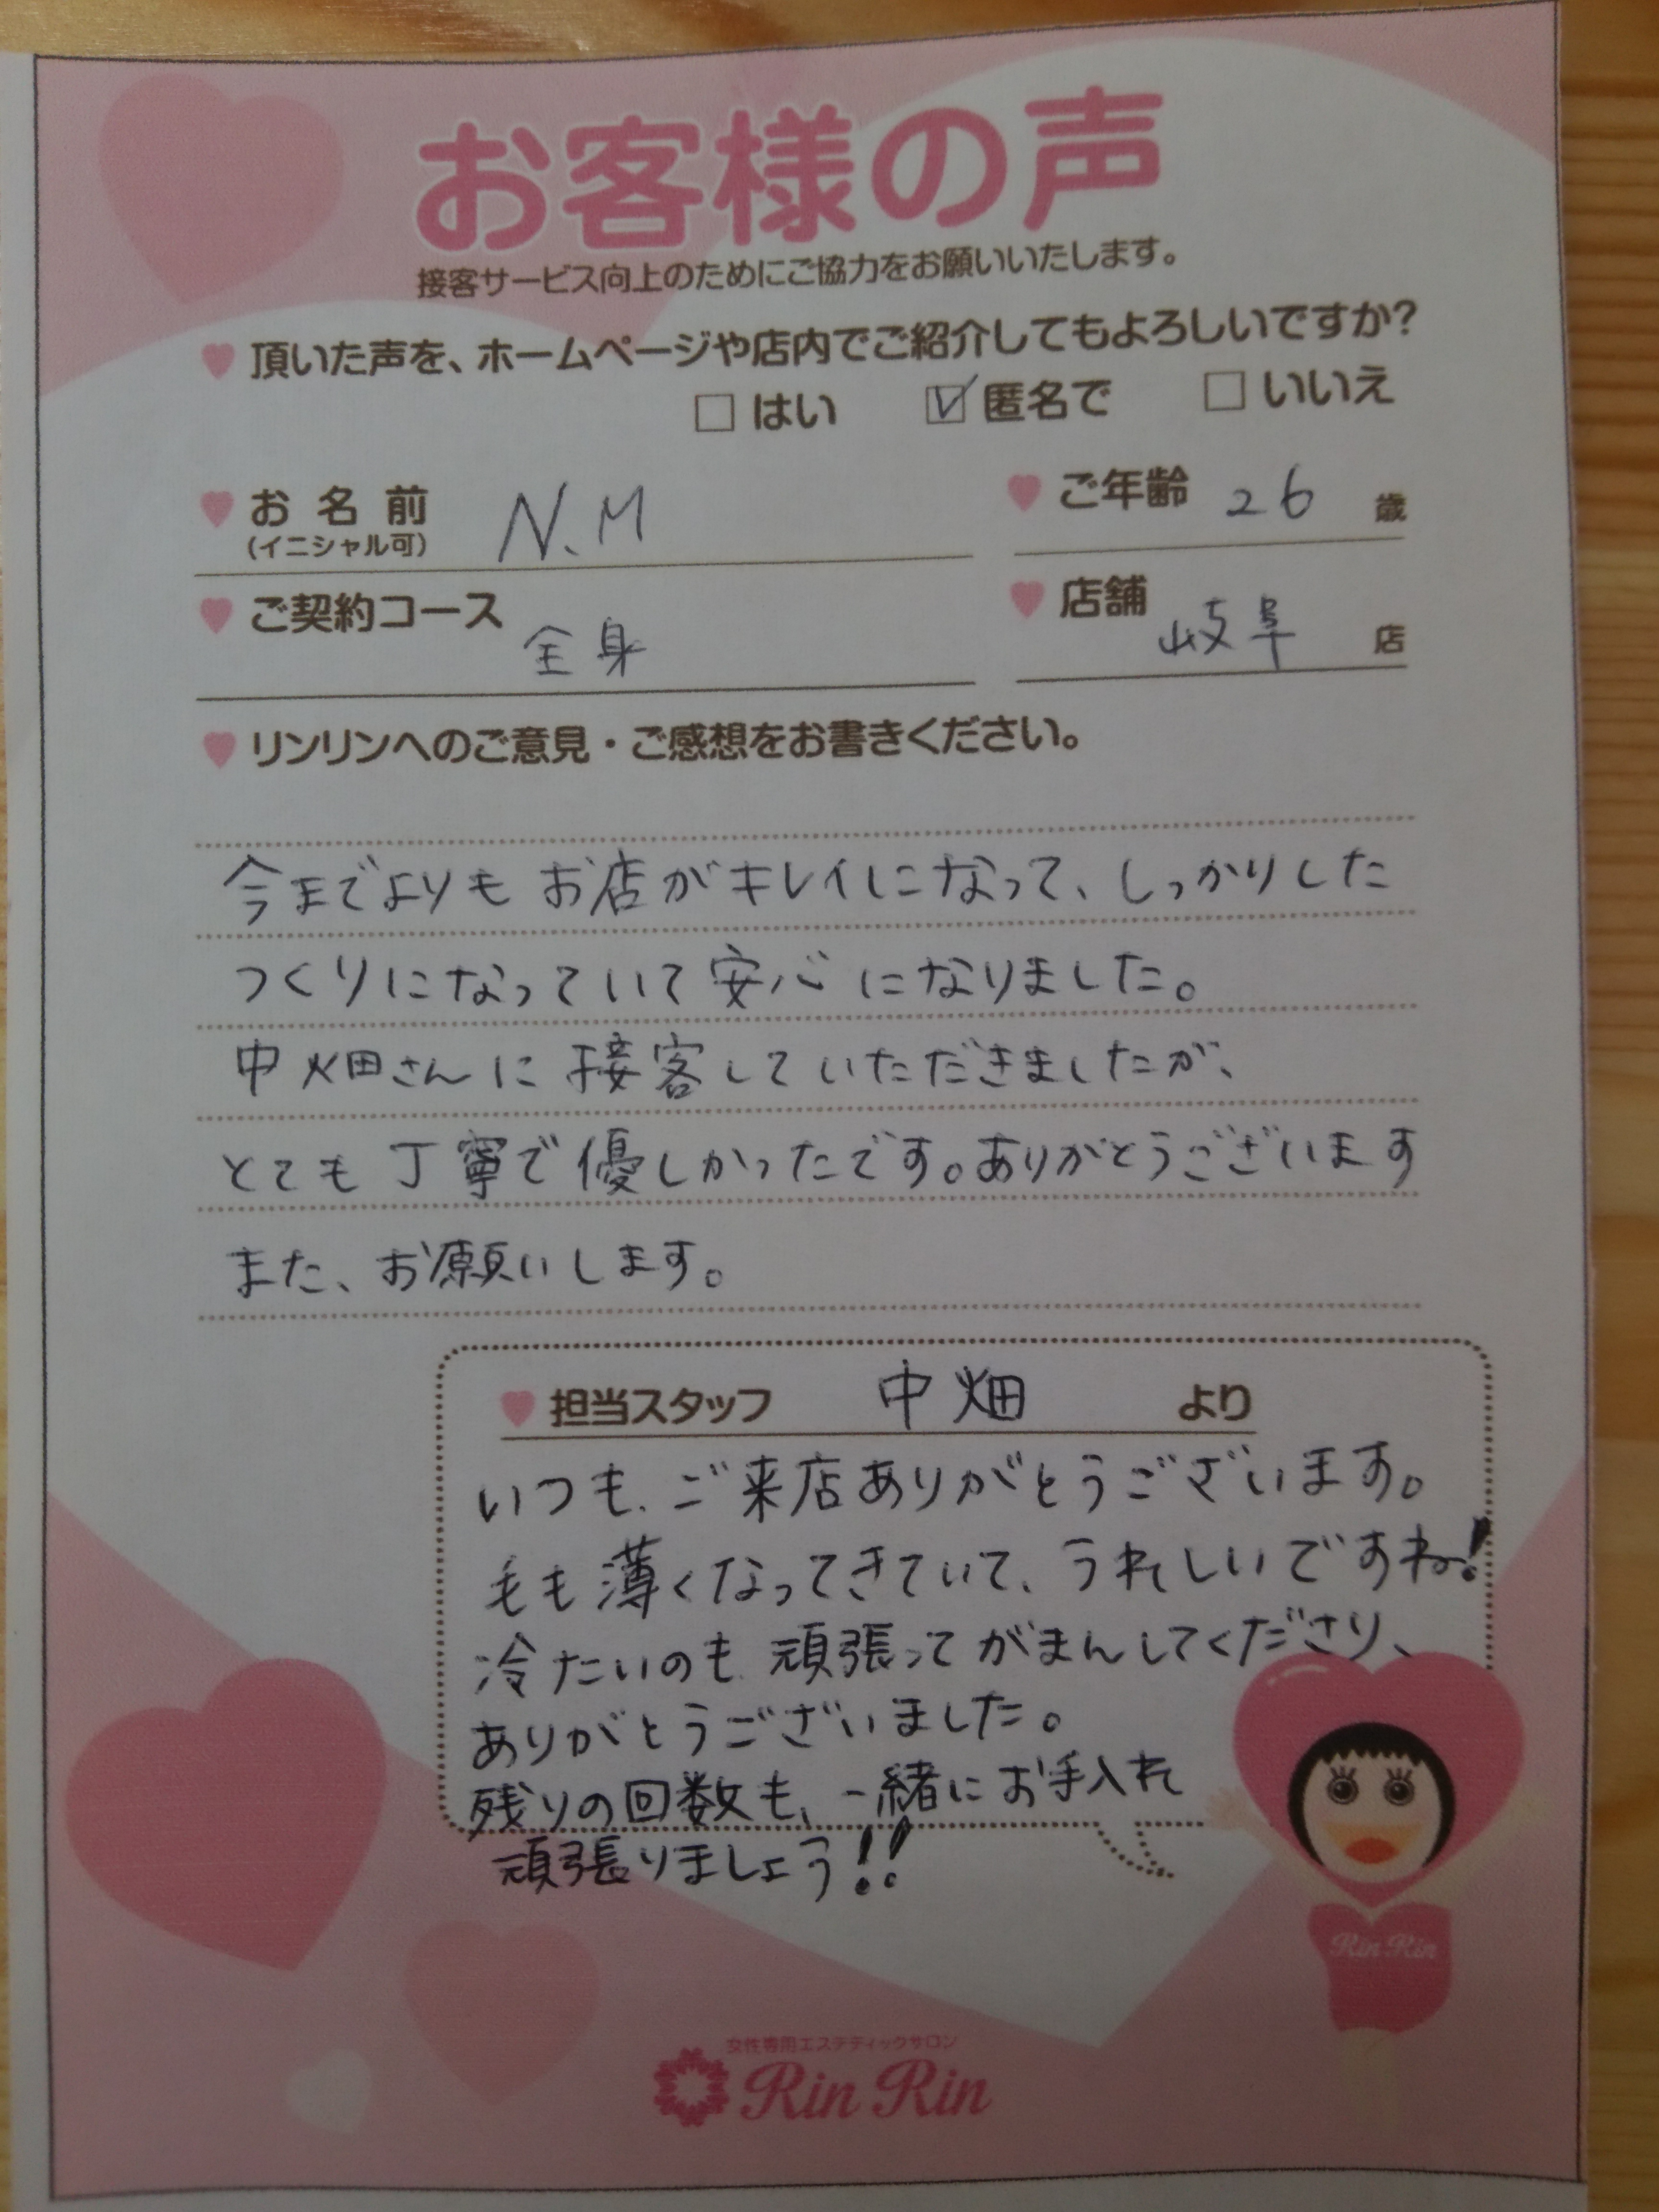 お客様の声
接客サービス向上のためにご協力をお願いいたします。
頂いた声を、ホームページや店内でご紹介してもよろしいですか？
はい 匿名で いいえ
お名前 N.M ご年齢 26 歳
(イニシャル可)
ご契約コース 全身 店舗 岐阜 店
リンリンへのご意見・ご感想をお書きください。
今までよりもお店がキレイになって、しっかりした
つくりになっていて安心になりました。
中畑さんに接客していただきましたが、
とても丁寧で優しかったです。ありがとうございます
また、お願いします。
担当スタッフ 中畑 より
いつも、ご来店ありがとうございます。
毛も薄くなってきていて、うれしいですね!
冷たいのも頑張ってがまんしてくださり、
ありがとうございました。
残りの回数も、一緒にお手入れ
頑張りましょう!!
Rin Rin
女性専用エステティックサロン
Rin Rin